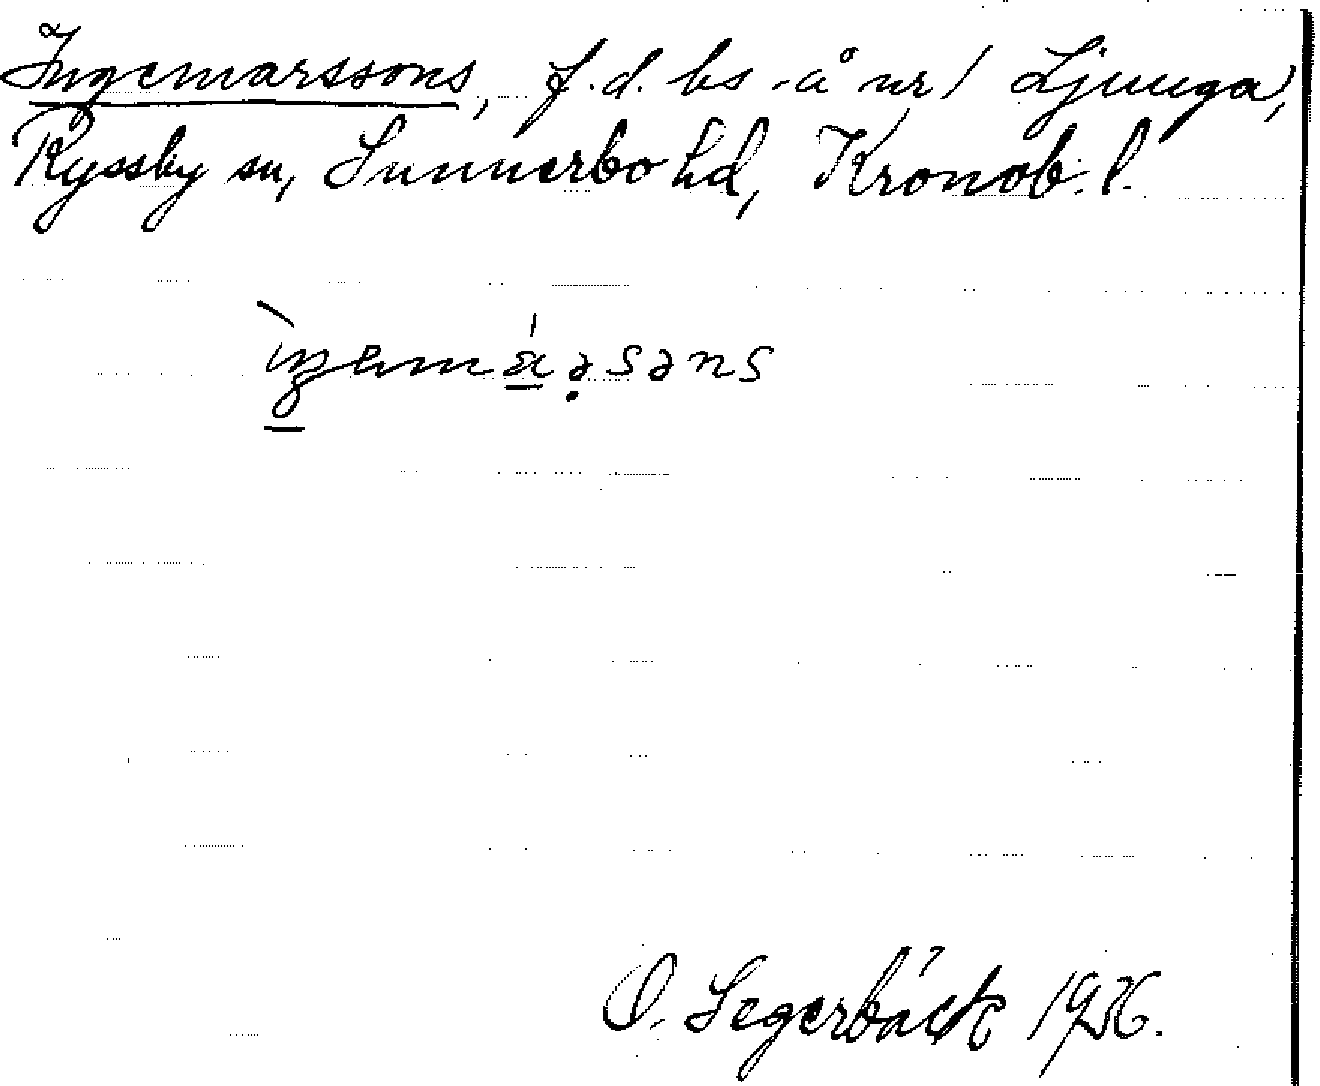 Ingemarssons, f.d. bs å nr 1 Ljunga,
Ryssby sn, Sunnerbo hd, Kronob. l.
O. Segerbäck 1936.